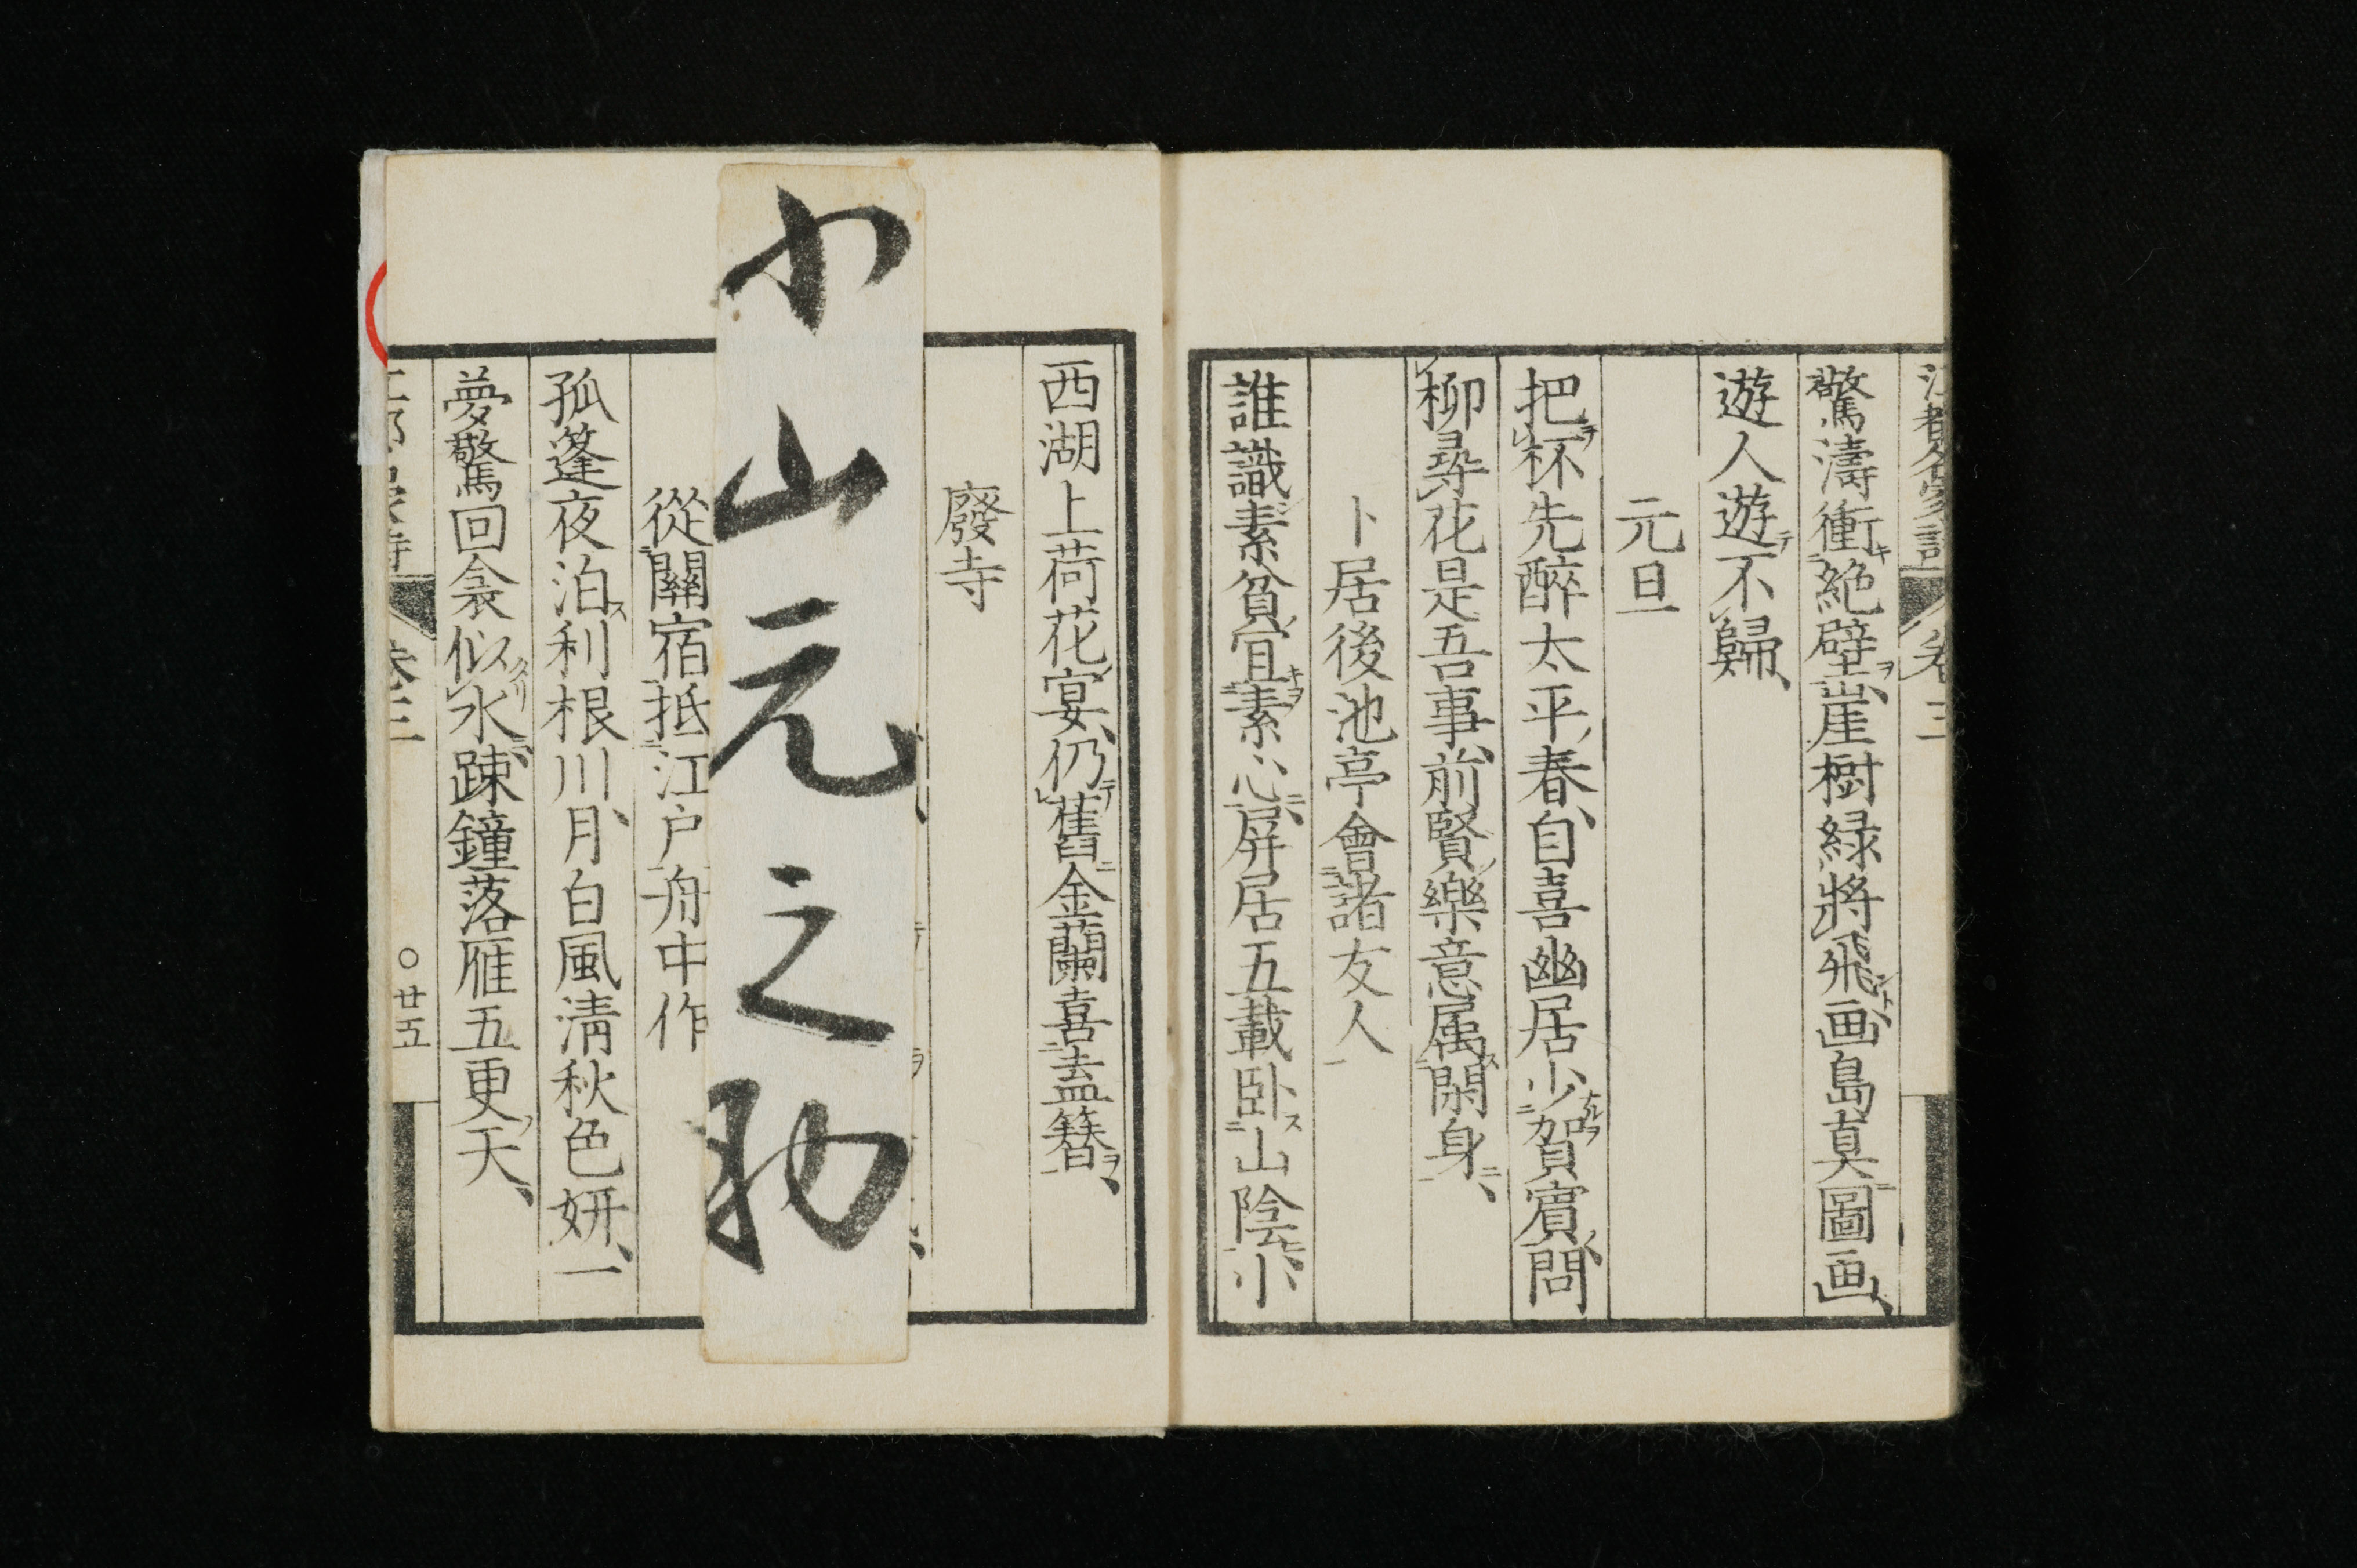 驚濤衝絶壁崖樹緑將飛画島真圖画
遊人遊不歸
元旦
把杯先醉太平春自喜幽居少賀賓問
柳尋花是吾事前賢樂意属閑身
卜居後池亭會諸友人
誰識素貧宜素心屏居五載卧山陰小
西湖上荷花宴仍舊金蘭喜盍簪
廢寺
小山元之助
從關宿抵江戸舟中作
孤篷夜泊利根川月白風清秋色妍一
夢驚回衾似水踈鐘落雁五更天
卷三 〇廿五